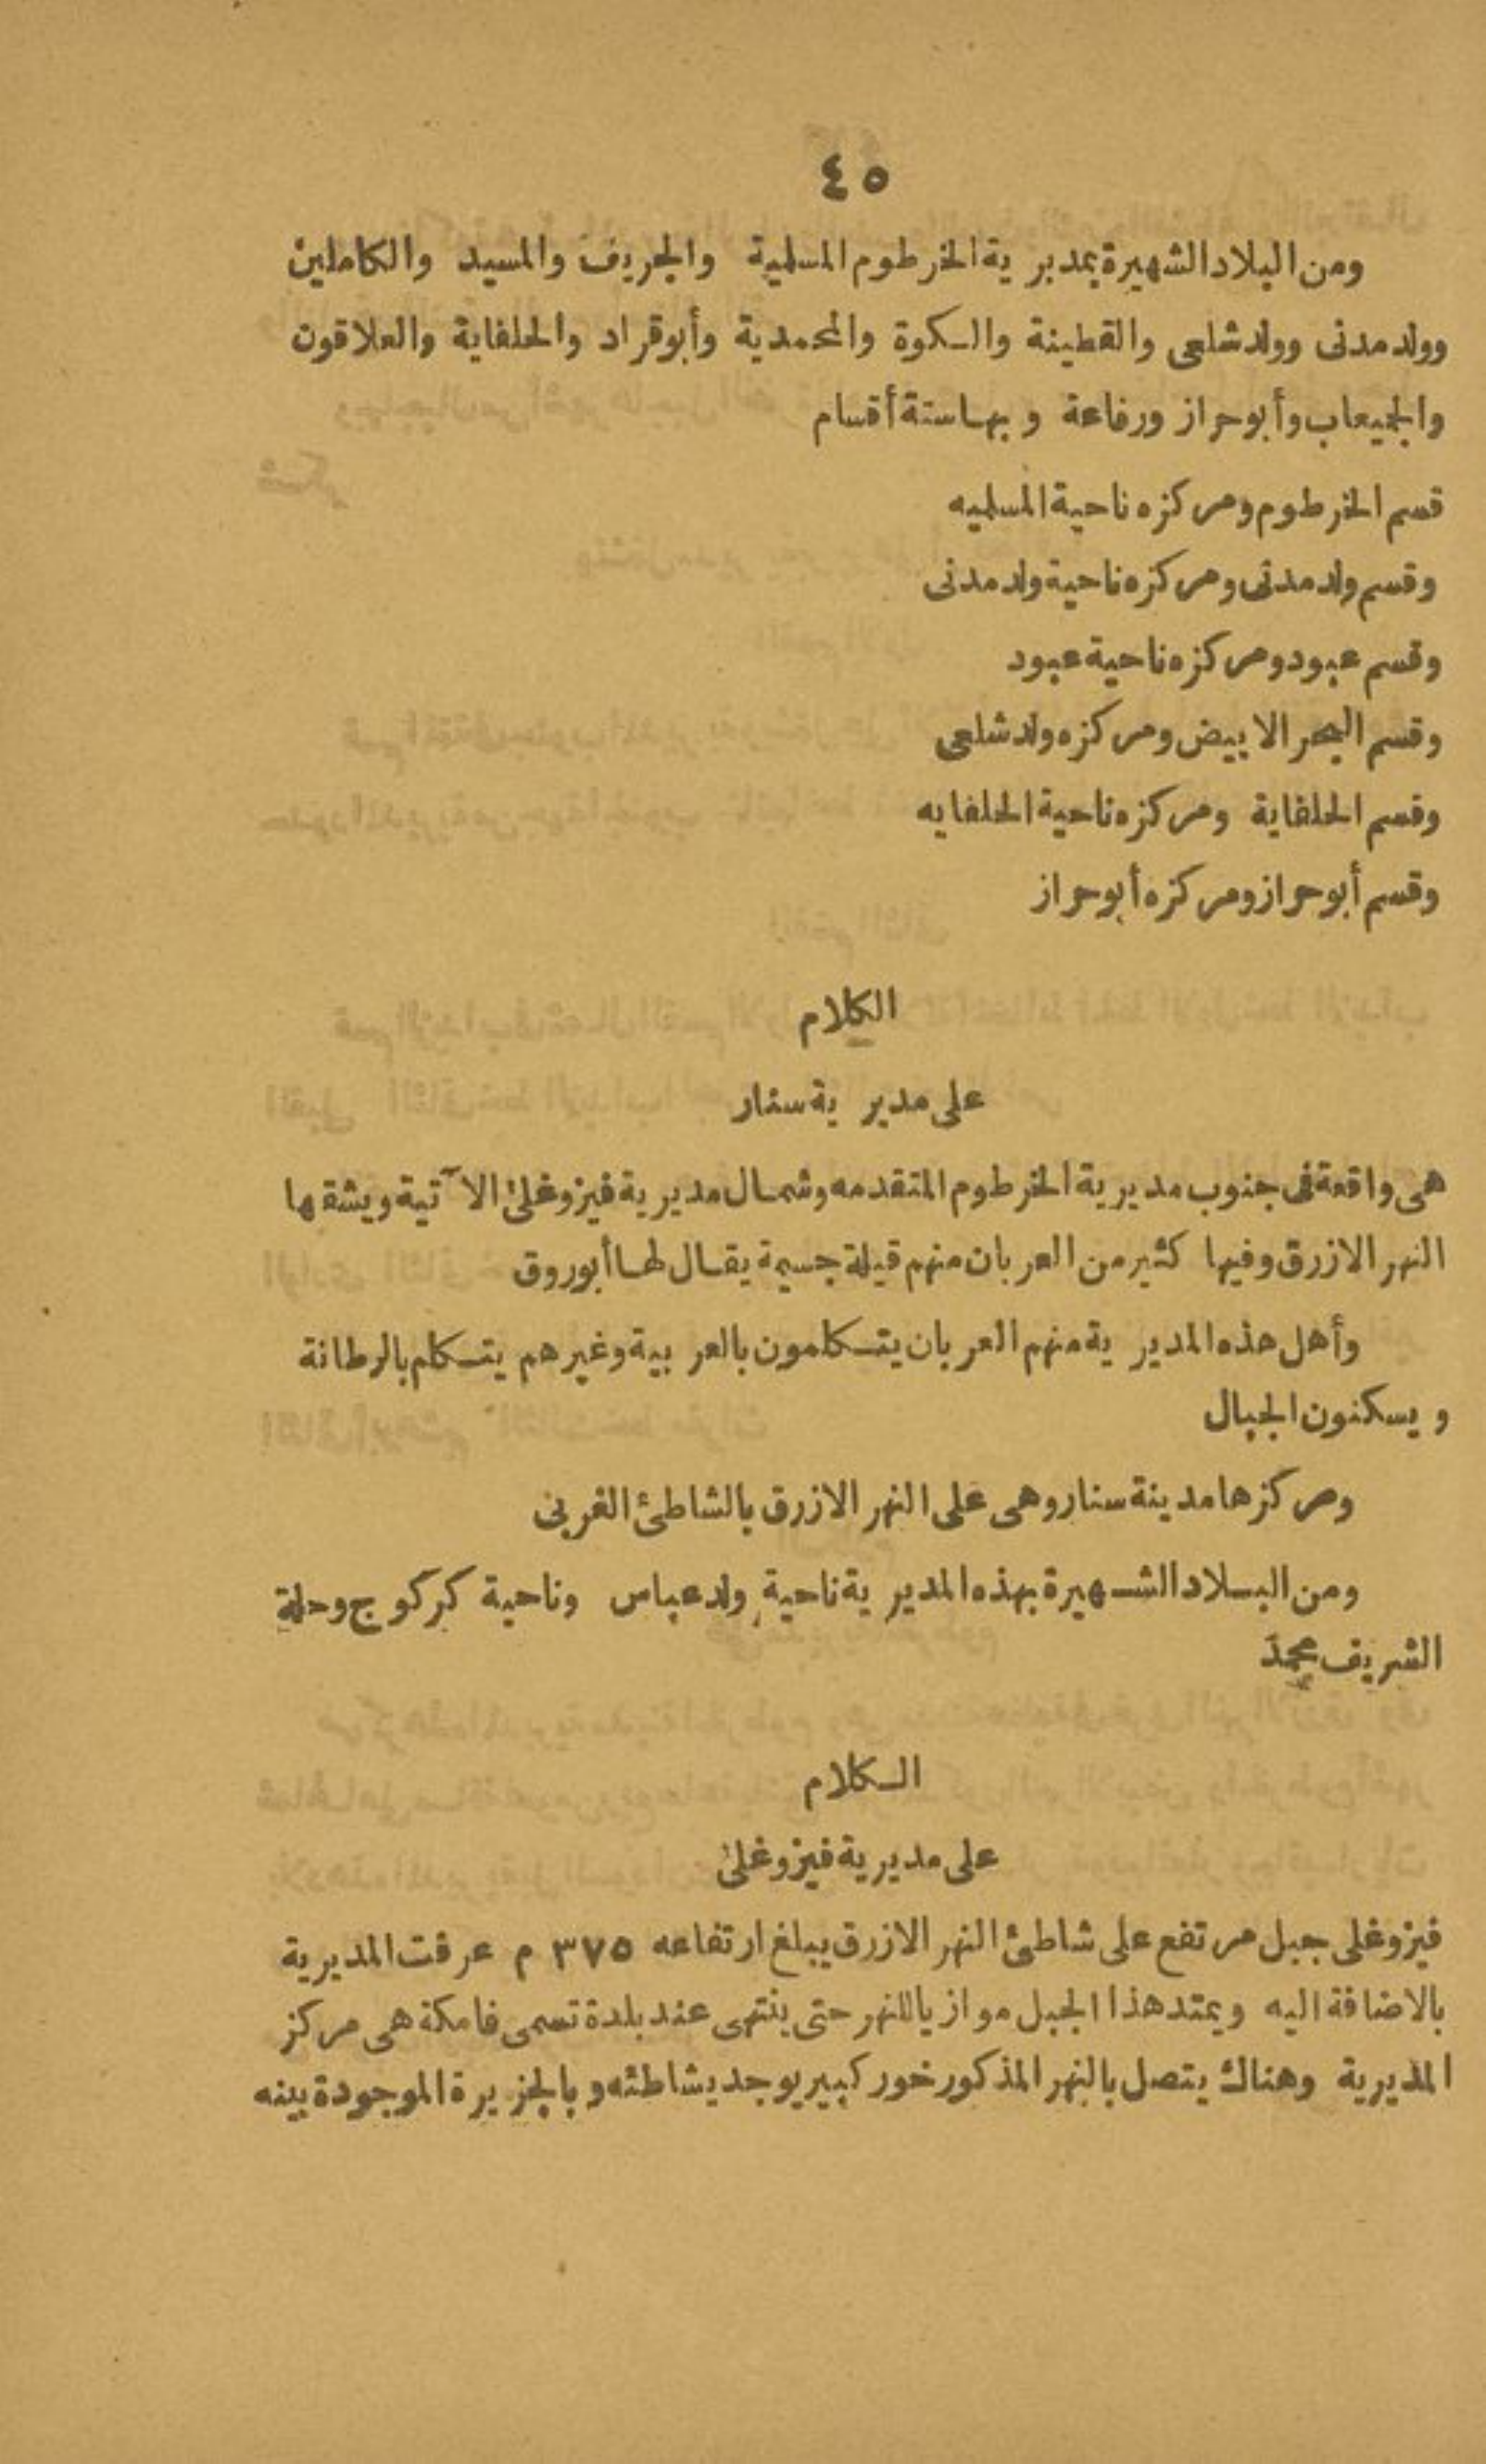 ٤٥
ومن البلاد الشهيرة بمديرية الخرطوم المسلمية والجريف والمسيد والكاملين
وولد مدنى وولد شلعى والقطينة والكوة والمحمدية وأبوقراد والحلفاية والعلاقون
والجميعاب وأبوحراز ورفاعة وبها ستة أقسام
قسم الخرطوم ومركزه ناحية المسلميه
وقسم ولد مدنى ومركزه ناحية ولد مدنى
وقسم عبود ومركزه ناحية عبود
وقسم البحر الابيض ومركزه ولد شلعى
وقسم الحلفاية ومركزه ناحية الحلفايه
وقسم أبوحراز ومركزه أبوحراز
الكلام
على مديرية سنار
هى واقعة فى جنوب مديرية الخرطوم المتقدمه وشمال مديرية فيزوغلى الآتية ويشقها
النهر الازرق وفيها كثير من العربان منهم قيلة جسيمة يقال لها أبوروق
وأهل هذه المديرية منهم العربان يتكلمون بالعربية وغيرهم يتكلم بالرطانة
ويسكنون الجبال
ومركزها مدينة سنار وهى على النهر الازرق بالشاطئ الغربى
ومن البلاد الشهيرة بهذه المديرية ناحية ولد عباس وناحية كركوج وحلة
الشريف محمد
الكلام
على مديرية فيزوغلى
فيزوغلى جبل مرتفع على شاطئ النهر الازرق يبلغ ارتفاعه ٣٧٥ م عرفت المديرية
بالاضافة اليه ويمتد هذا الجبل موازيا للنهر حتى ينتهى عند بلدة تسمى فامكة هى مركز
المديرية وهناك يتصل بالنهر المذكور خور كبير يوجد بشاطئه وبالجزيرة الموجودة بينه